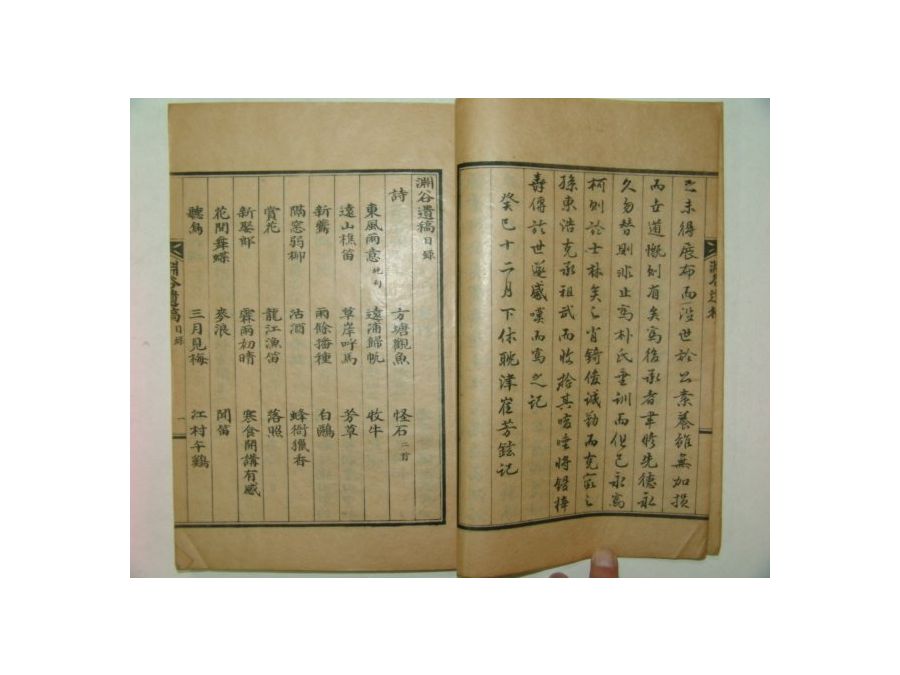 之未得展布而沒世於公素養雖無加損
而世道慨則有矣寫後承者聿修先德永
久勿替則非止寫朴氏垂訓而但已永寫
柯則於士林矣之肖錡俊誠勤而克
孫東浩克承祖武而收拾其咳唾將鋟梓
壽傳於世遂感嘆而寫之記
癸巳十二月下休耽津崔芳鉉記
淵谷遺稿目錄
詩 方塘觀魚 怪石二首
東風雨意絶句 遠浦歸帆 牧牛
遠山樵笛 草岸呼馬 芳草
新鶯 雨餘播種 白鷗
隔窓弱柳 沽酒 蜂衙獵香
賞花 龍江漁笛 落照
新娶郞 霖雨初晴 寒食開講有感
花間舞蝶 麥浪 聞笛
聽鳥 三月見梅 江村午鷄
淵谷遺稿 目錄 一